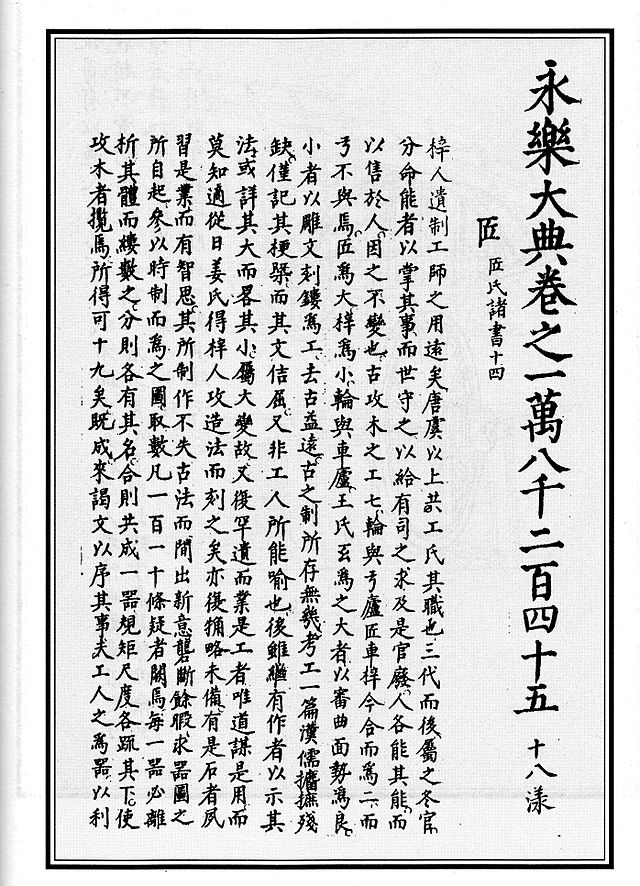 永樂大典卷之一萬八千二百四十五 十八漾
匠 匠氏諸書十四
梓人遺制工師之用遠矣唐虞以上共工氏其職也三代而後屬之冬官
分命能者以掌其事而世守之以給有司之求及是官廢人各能其能而
以售於人因之不變也古攻木之工七輪輿弓廬匠車梓今合而為二而
弓不與焉匠為大梓為小輪輿車廬王氏玄為之大者以審曲面勢為良
小者以雕文刻鏤為工去古益遠古之制所存無幾考工一篇漢儒攟摭殘
缺僅記其梗槩而其文佶屈又非工人所能喻也後雖繼有作者以示其
法或詳其大而畧其小屬大變故又復罕遺而業是工者唯道謀是用而
莫知適從日姜氏得梓人攻造法而刻之矣亦復猶略未備有是石者夙
習是業而有智思其所制作不失古法而間出新意礱斷餘暇求器圖之
所自起參以時制而為之圖取數凡一百一十條疑者闕焉每一器必離
析其體而縷數之分則各有其名合則共成一器規矩尺度各疏其下使
攻木者攬焉所得可十九矣既成來謁文以序其事夫工人之為器以利